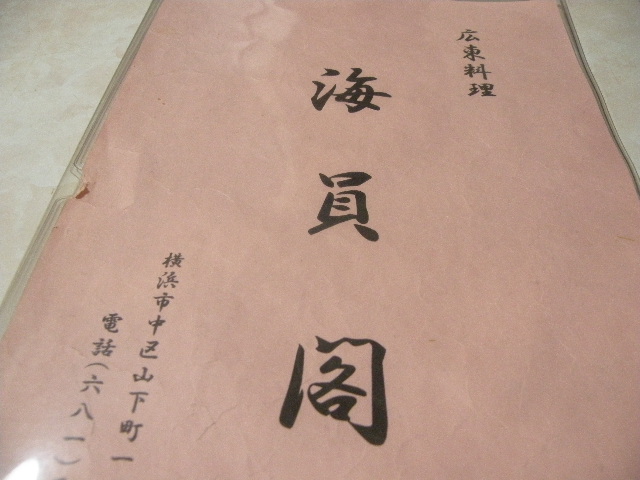 広東料理
海員閣
横浜市中区山下町一
電話(六八一)